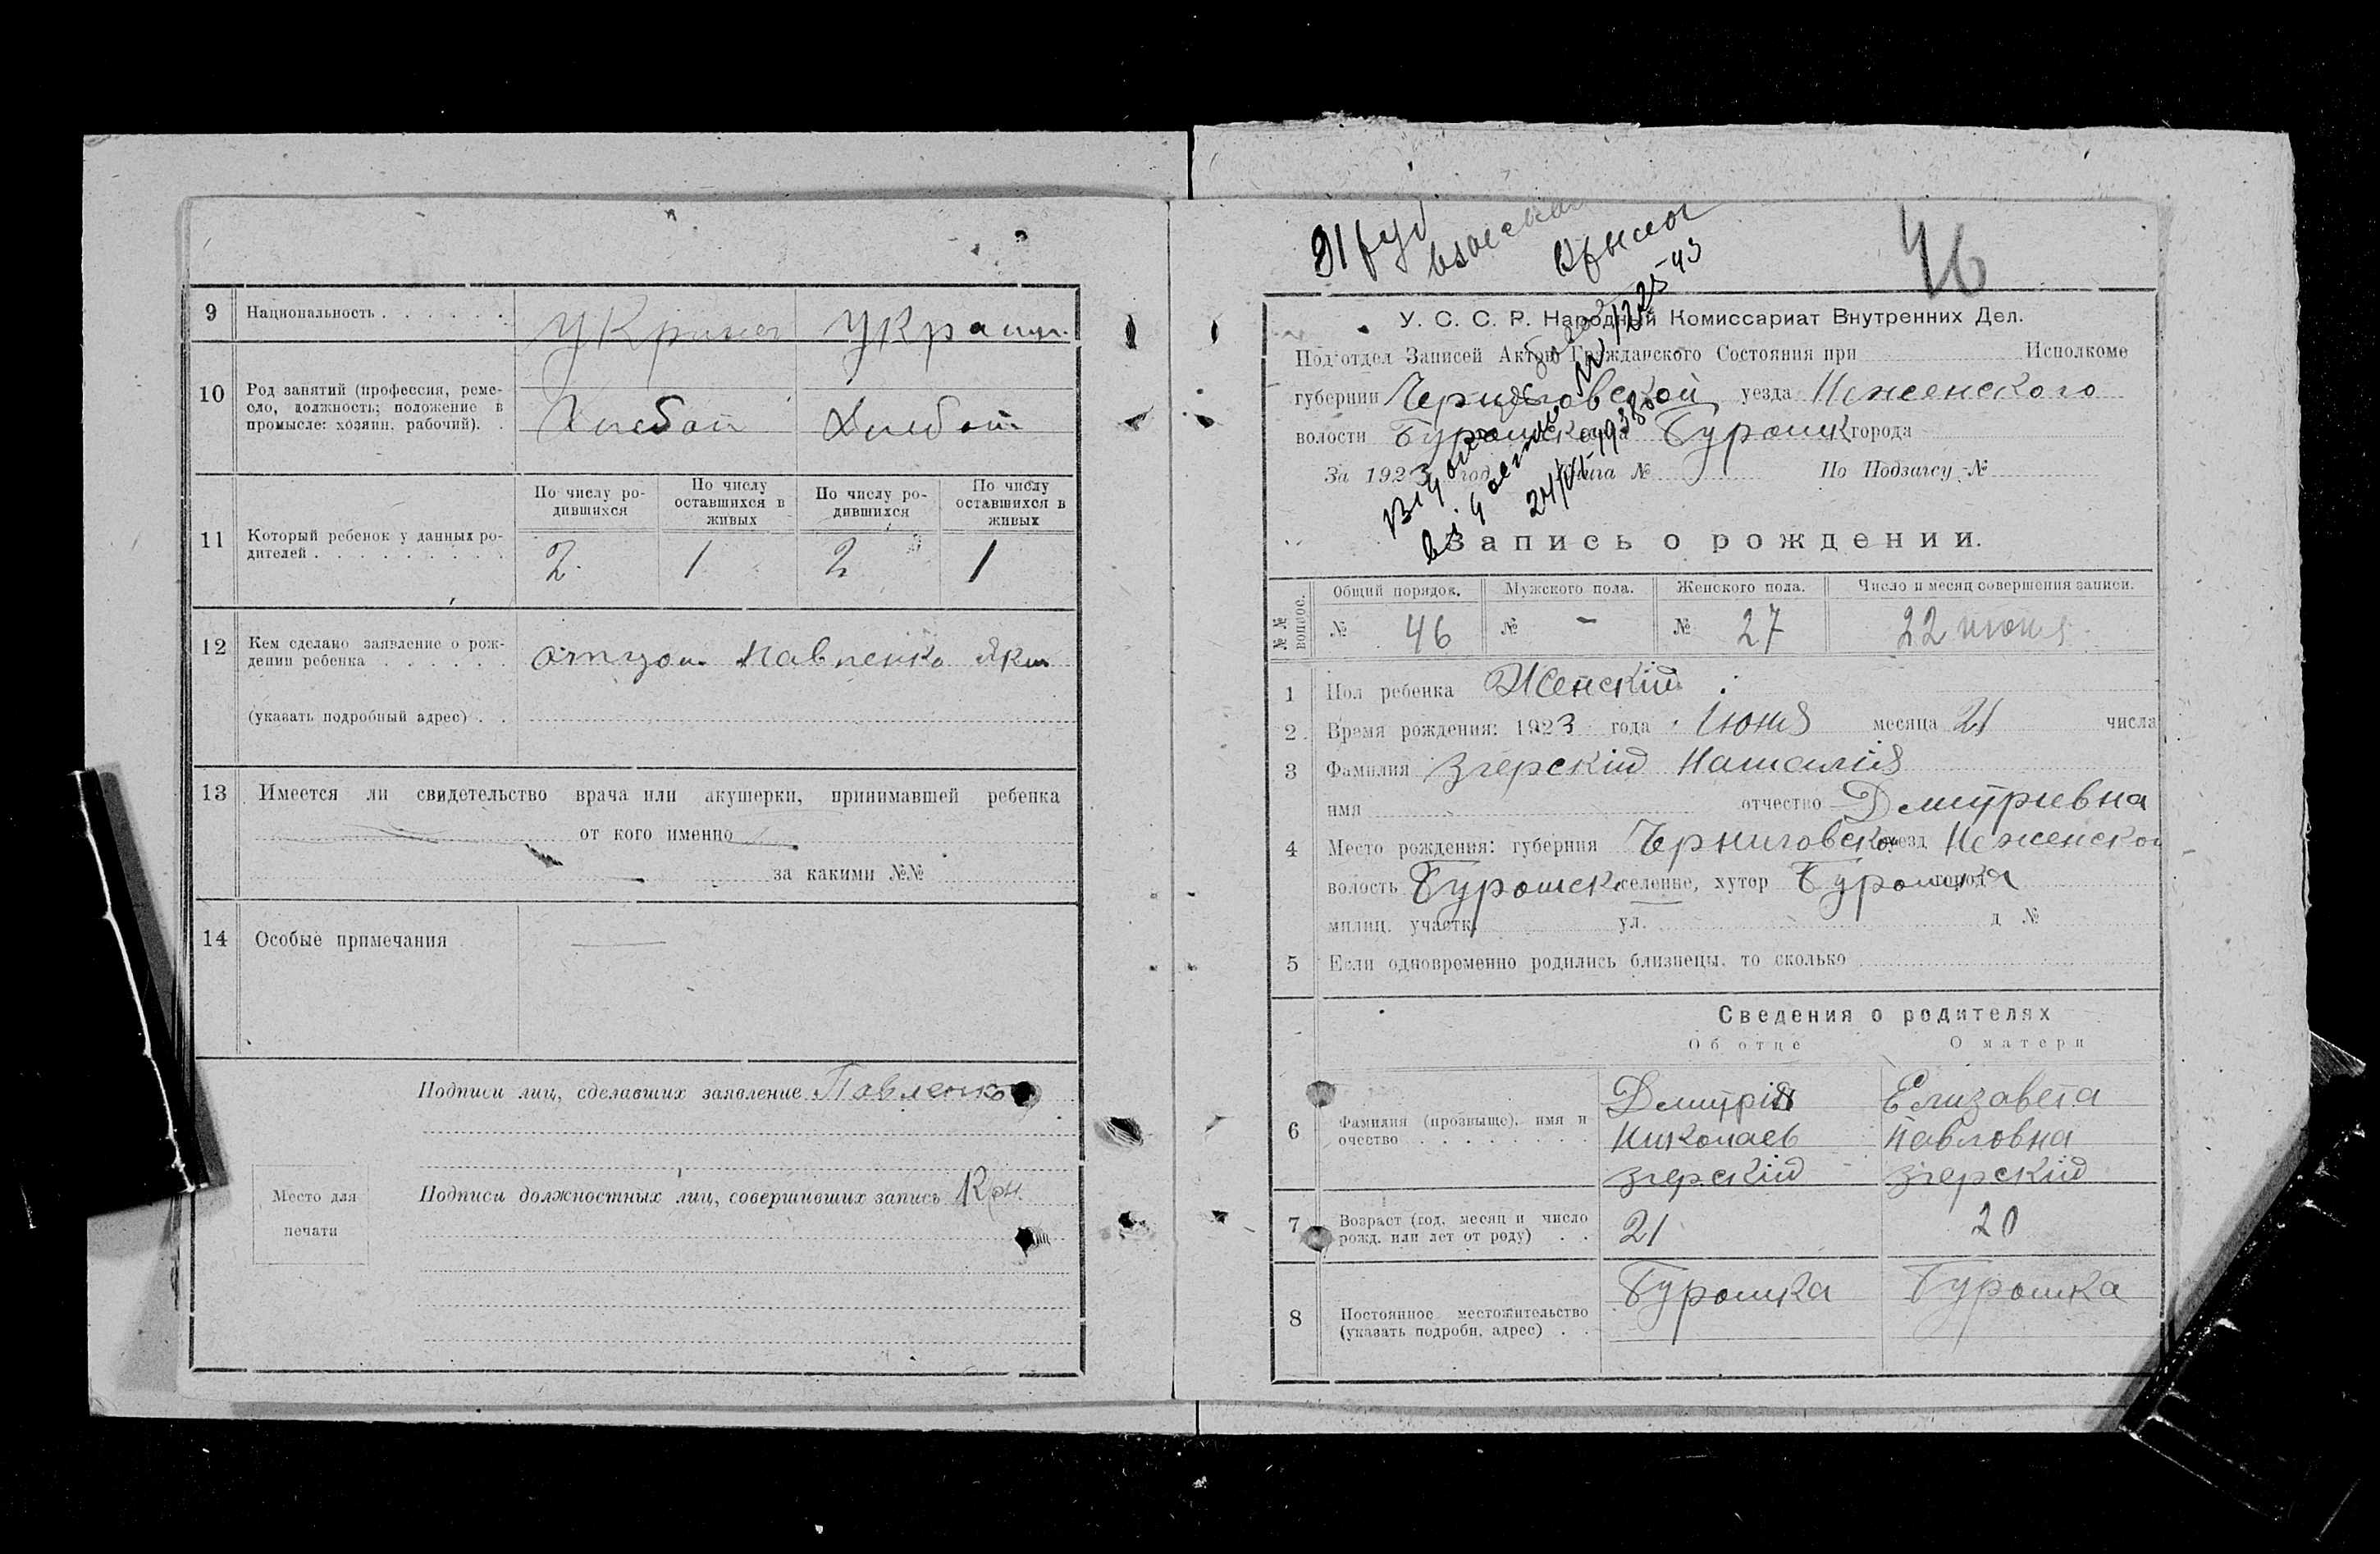 9 Национальность . . . . . .
Украинец Украин.
10 Род занятий (профессия, реме-
сло, должность; положение в
промысле: хозяин, рабочий). .
Хлебоп Хлебоп
По числу ро-
дившихся
По числу
оставшихся в
живых
По числу ро-
дившихся
По числу
оставшихся в
живых
11 Который ребенок у данных ро-
дителей . . . . . . . . . .
2 1 2 1
12 Кем сделано заявление о рож-
дении ребенка . . . . . .
Павленко
(указать подробный адрес) . .
13 Имеется ли свидетельство врача или акушерки, принимавшей ребенка
от кого именно
за какими №№
14 Особые примечания
Подписи лиц, сделавших заявление Павленко
Место для
печати
Подписи должностных лиц, совершивших запись
46
У. С. С. Р. Народный Комиссариат Внутренних Дел.
Под'отдел Записей Актов Гражданского Состояния при Исполкоме
губернии Черниговской уезда Неженского
волости города
За 1923 год Книга № По Подзагсу №
Запись о рождении.
№№ вопрос.
Общий порядок. Мужского пола. Женского пола. Число и месяц совершения записи.
№ 46 № - № 27 22 июня
1 Пол ребенка Женскій
2 Время рождения: 1923 года Июня месяца 21 числа
3 Фамилия Згерскій Наталія
имя отчество Дмитриевна
4 Место рождения: губерния Черниговской уезд Неженской
волость селение, хутор города
милиц. участк. ул. д №
5 Если одновременно родились близнецы, то сколько
Сведения о родителях
Об отце О матери
6 Фамилия (прозвыще), имя и
очество . . . . . . . .
Дмитрій Елизавета
Николаев Павловна
Згерскій Згерскій
7 Возраст (год, месяц и число
рожд. или лет от роду) . .
21 20
8 Постоянное местожительство
(указать подробн. адрес) . .